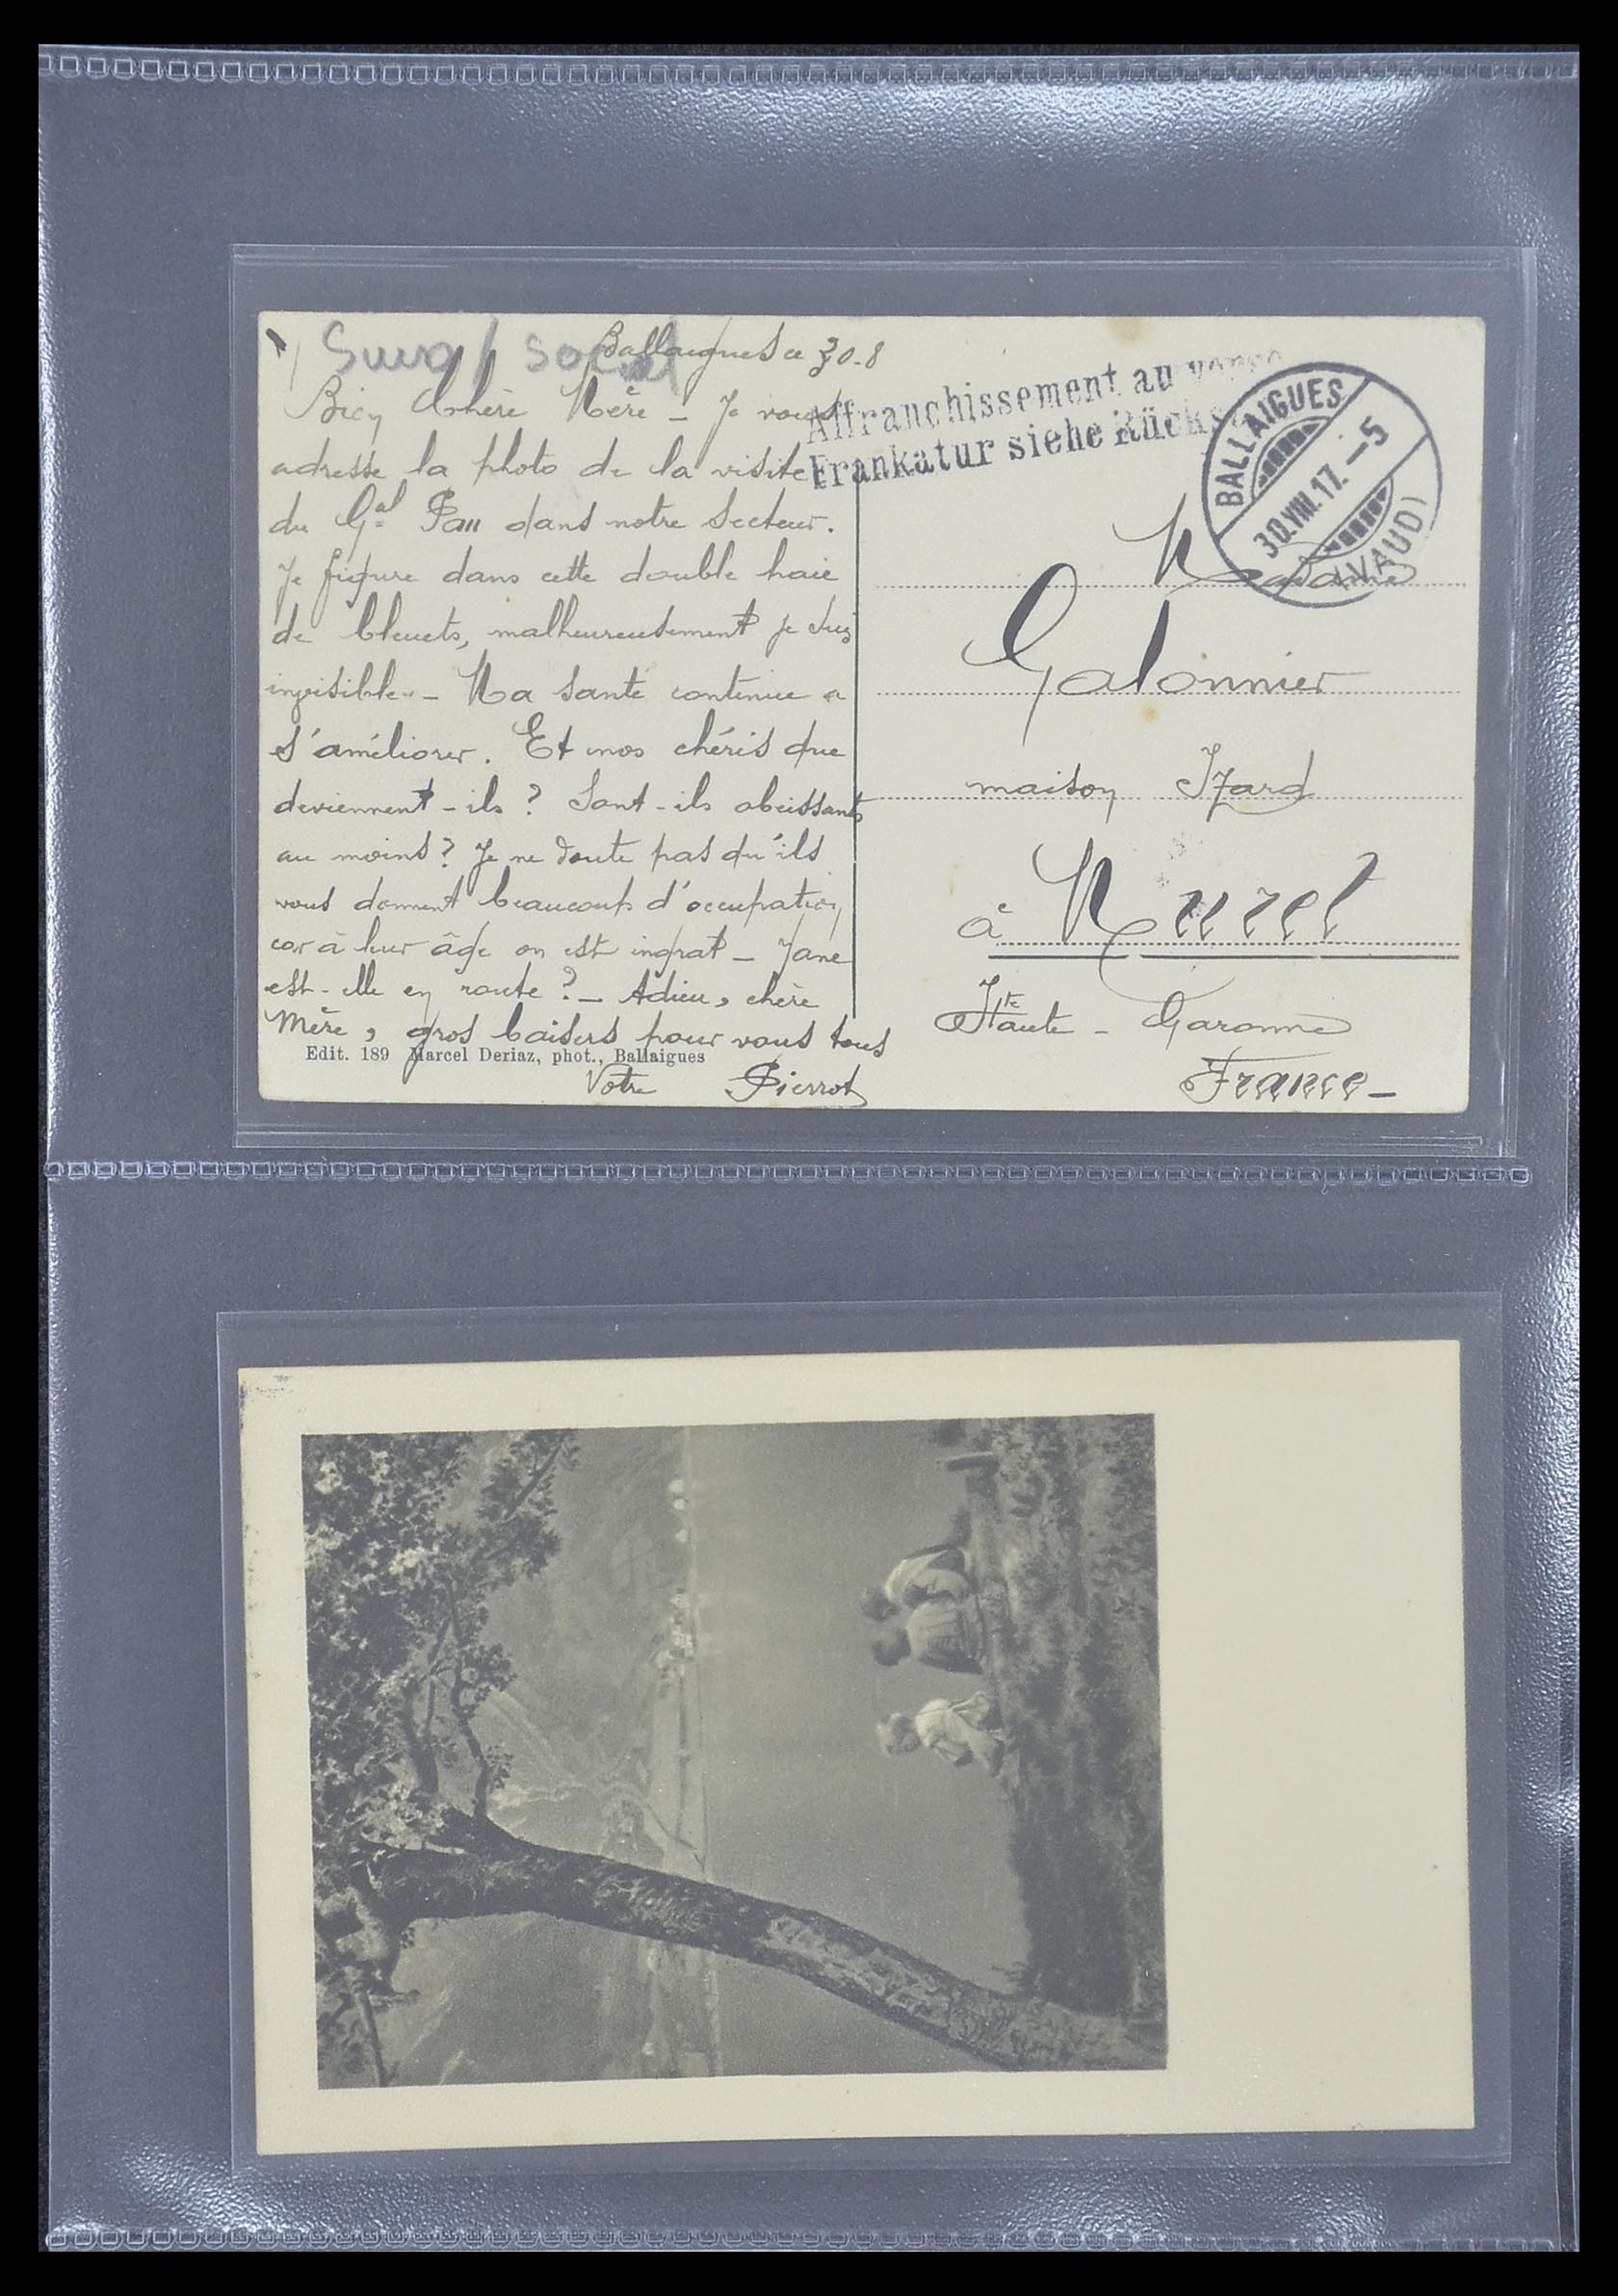 Ballaigues ce 30-8
Bien chère Mère – Je vous
adresse la photo de la visite
du Gal Pau dans notre secteur.
Je figure dans cette double haie
de bleuets, malheureusement je suis
invisible. – Ma santé continue a
s'améliorer. Et mos chéris que
deviennent-ils ? Sont-ils obeissants
au moins ? Je ne doute pas qu'ils
vous donnent beaucoup d'occupation
car à leur âge on est ingrat – Jane
est-elle en route ? – Adieu, chère
Mère, gros baisers pour vous tous
Votre Pierrot
Edit. 189 Marcel Deriaz, phot., Ballaigues
Affranchissement au verso
Frankatur siehe
BALLAIGUES
30.VIII.17.–5
(VAUD)
Madame
Galonnier
maison Izard
à Muret
Hte Haute-Garonne
France –